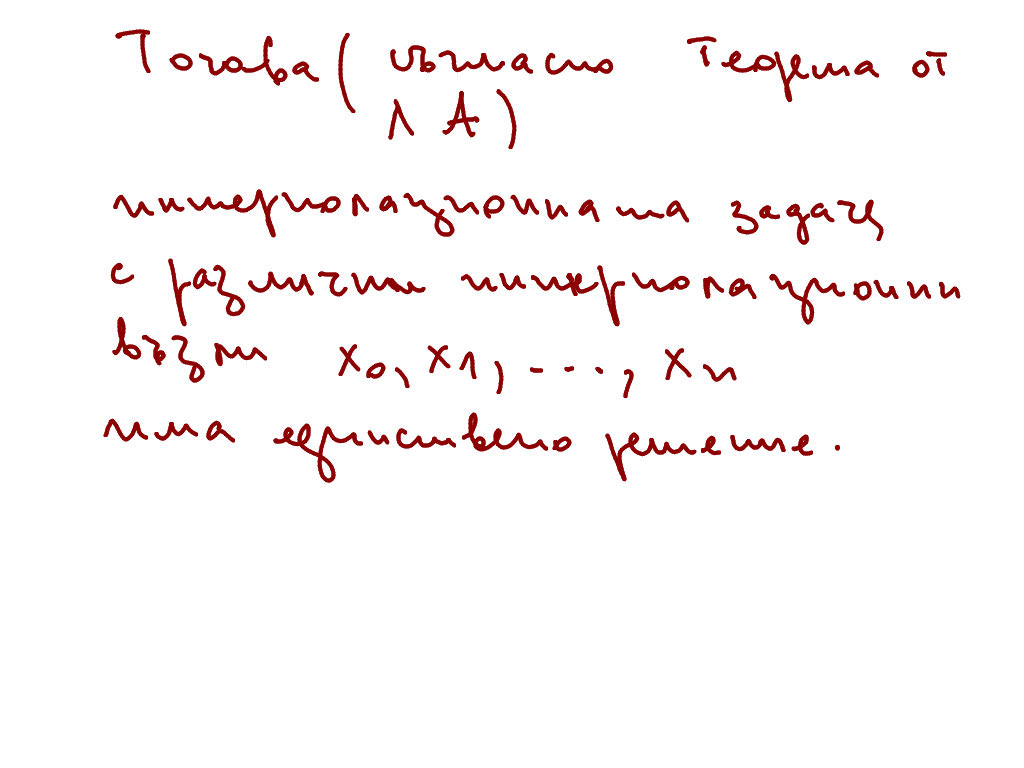 Тогава ( съгласно Теорема от
ЛА)
интерполационната задача
с различни интерполационни
възли x₀, x₁, ..., xₙ
има единствено решение.